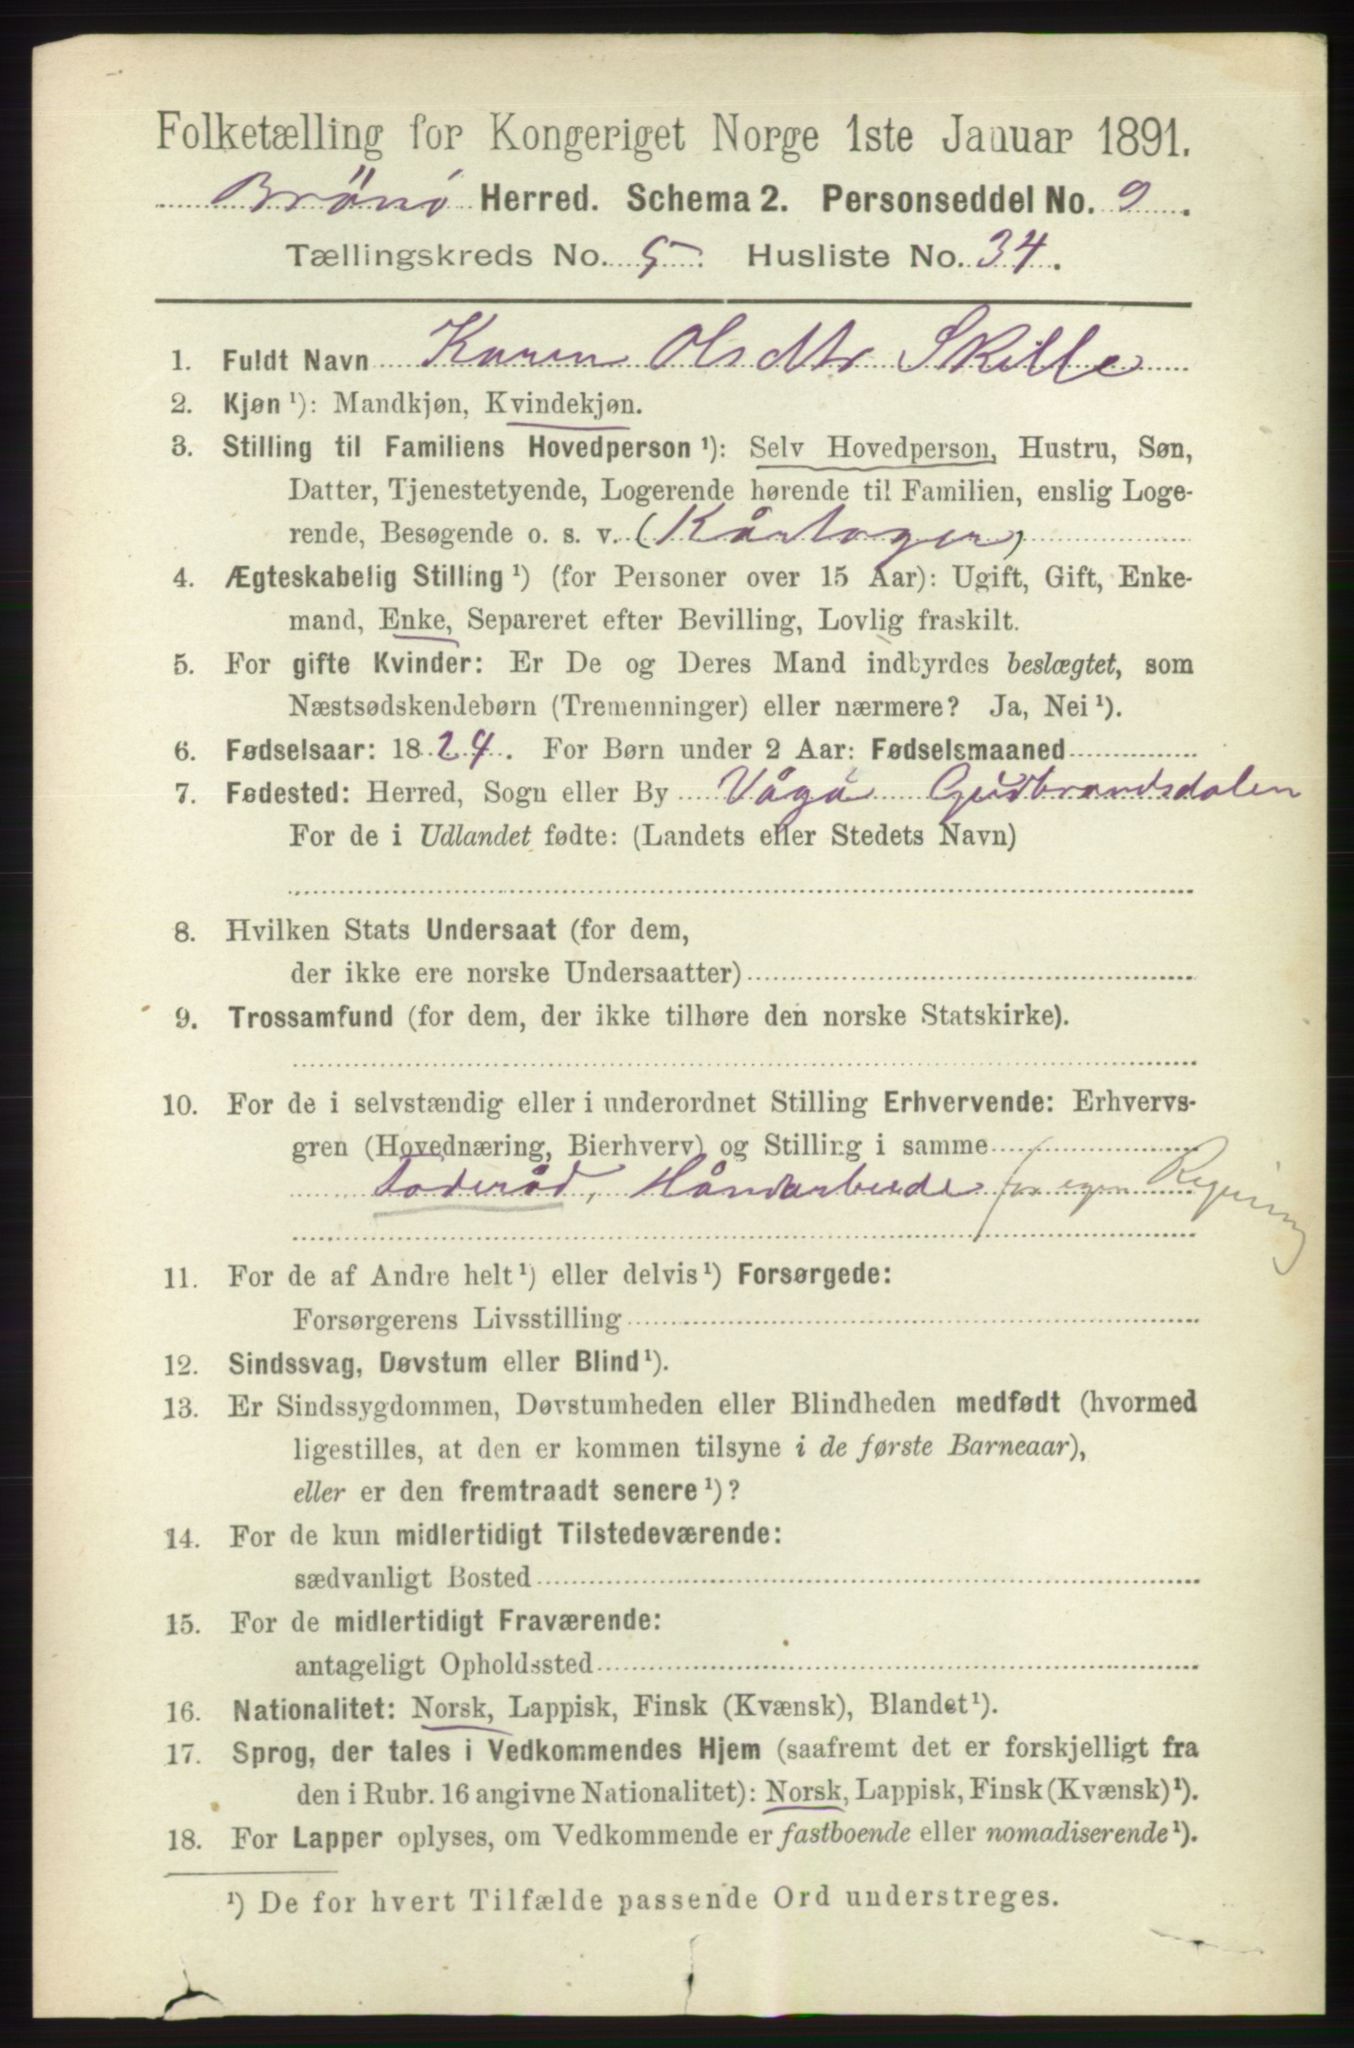 Folketælling for Kongeriget Norge 1ste Januar 1891.
Brönö Herred. Schema 2. Personseddel No. 9.
Tællingskreds No. 5. Husliste No. 34.
1. Fuldt Navn Karen Olsdtr Skille
2. Kjøn ¹): Mandkjøn, Kvindekjøn.
3. Stilling til Familiens Hovedperson ¹): Selv Hovedperson, Hustru, Søn,
Datter, Tjenestetyende, Logerende hørende til Familien, enslig Loge-
rende, Besøgende o. s. v. (Kårtager)
4. Ægteskabelig Stilling ¹) (for Personer over 15 Aar): Ugift, Gift, Enke-
mand, Enke, Separeret efter Bevilling, Lovlig fraskilt.
5. For gifte Kvinder: Er De og Deres Mand indbyrdes beslægtet, som
Næstsødskendebørn (Tremenninger) eller nærmere? Ja, Nei ¹).
6. Fødselsaar: 1824. For Børn under 2 Aar: Fødselsmaaned
7. Fødested: Herred, Sogn eller By Vågå Gudbrandsdalen
For de i Udlandet fødte: (Landets eller Stedets Navn)
8. Hvilken Stats Undersaat (for dem,
der ikke ere norske Undersaatter)
9. Trossamfund (for dem, der ikke tilhøre den norske Statskirke).
10. For de i selvstændig eller i underordnet Stilling Erhvervende: Erhvervs-
gren (Hovednæring, Bierhverv) og Stilling i samme
Foderåd, Håndarbeide for egen Regning
11. For de af Andre helt ¹) eller delvis ¹) Forsørgede:
Forsørgerens Livsstilling
12. Sindssvag, Døvstum eller Blind ¹).
13. Er Sindssygdommen, Døvstumheden eller Blindheden medfødt (hvormed
ligestilles, at den er kommen tilsyne i de første Barneaar),
eller er den fremtraadt senere ¹)?
14. For de kun midlertidigt Tilstedeværende:
sædvanligt Bosted
15. For de midlertidigt Fraværende:
antageligt Opholdssted
16. Nationalitet: Norsk, Lappisk, Finsk (Kvænsk), Blandet ¹).
17. Sprog, der tales i Vedkommendes Hjem (saafremt det er forskjelligt fra
den i Rubr. 16 angivne Nationalitet): Norsk, Lappisk, Finsk (Kvænsk) ¹).
18. For Lapper oplyses, om Vedkommende er fastboende eller nomadiserende ¹).
¹) De for hvert Tilfælde passende Ord understreges.